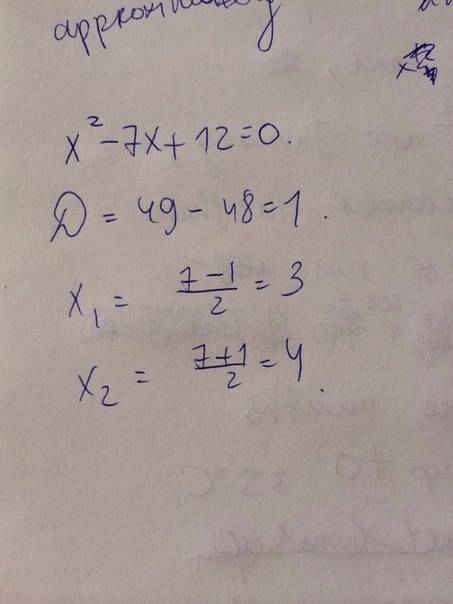 approximately
x² - 7x + 12 = 0.
D = 49 - 48 = 1.
x₁ = (7-1)/2 = 3
x₂ = (7+1)/2 = 4.